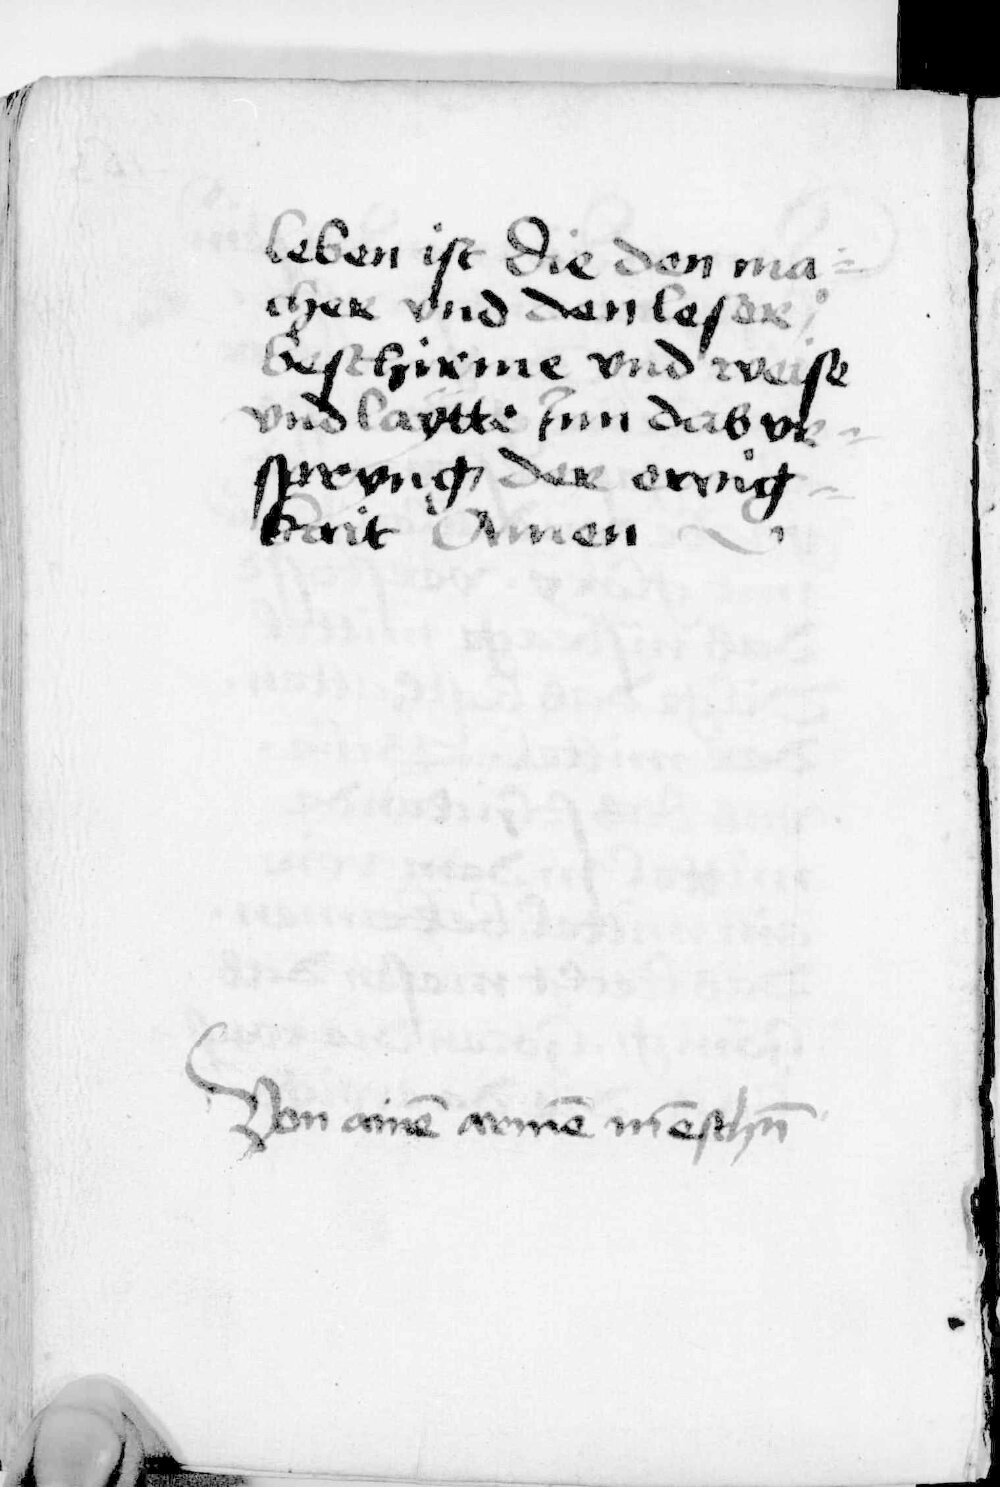 leben ist die den ma-
cher vnd den leser
beschirme vnd weise
vnd laÿtte jnn das vr-
sprung der ewig-
kait Amen
Von ainē armē mēschn̄